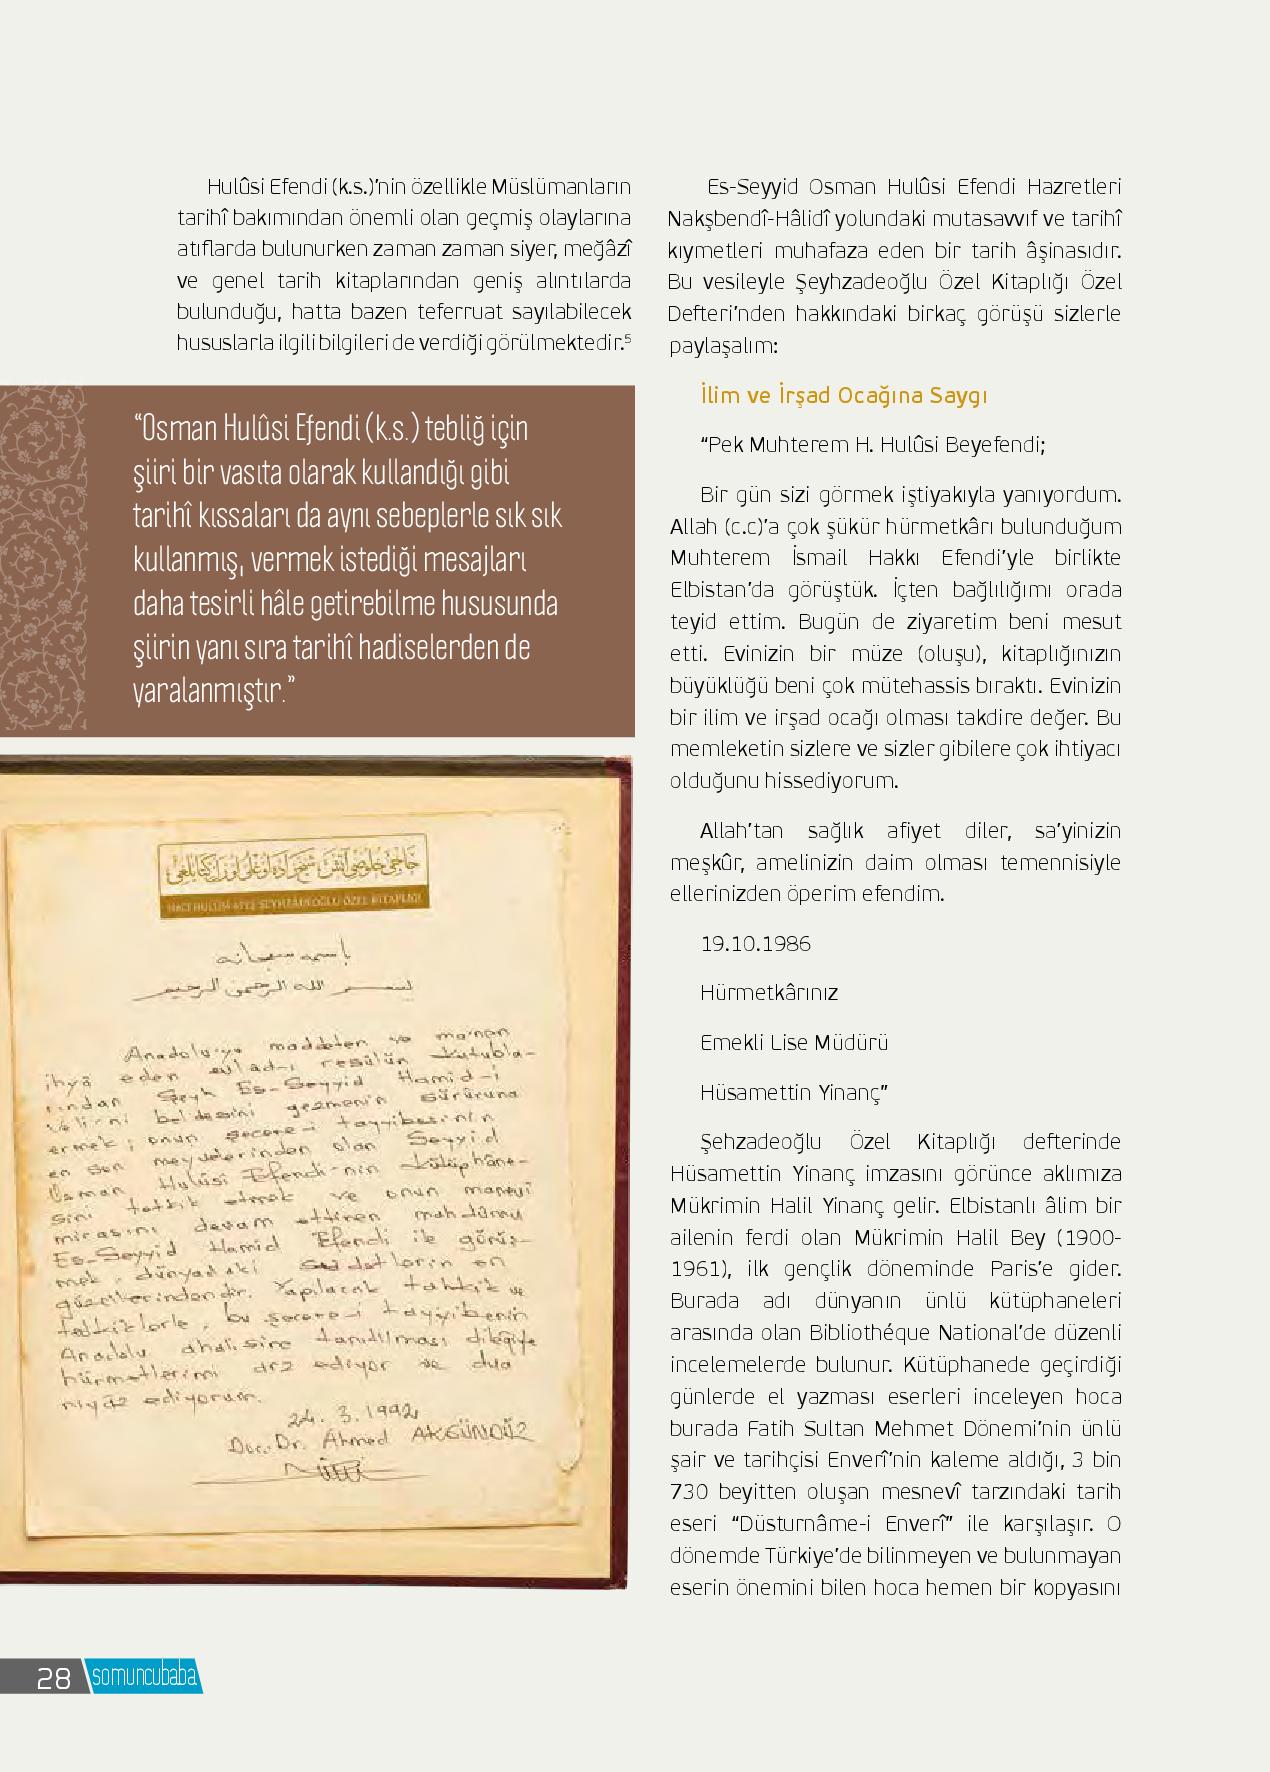 Hulûsi Efendi (k.s.)’nin özellikle Müslümanların
tarihî bakımından önemli olan geçmiş olaylarına
atıflarda bulunurken zaman zaman siyer, meğâzî
ve genel tarih kitaplarından geniş alıntılarda
bulunduğu, hatta bazen teferruat sayılabilecek
hususlarla ilgili bilgileri de verdiği görülmektedir.⁵
“Osman Hulûsi Efendi (k.s.) tebliğ için
şiiri bir vasıta olarak kullandığı gibi
tarihî kıssaları da aynı sebeplerle sık sık
kullanmış, vermek istediği mesajları
daha tesirli hâle getirebilme hususunda
şiirin yanı sıra tarihî hadiselerden de
yaralanmıştır.”
HACI HULÛSİ ATEŞ ŞEYHZÂDEOĞLU ÖZEL KİTAPLIĞI
باسمه سبحانه
بسم الله الرحمن الرحيم
Anadolu'yu maddeten ve ma'nen
ihyâ eden evlad-ı resûlün kutubla-
rından Şeyh Es-Seyyid Hamid-i
Veli'ni beldesini gezmenin sürûruna
ermek; onun şecere-i tayyibesinin
en son meyvelerinden olan Seyyid
Osman Hulûsi Efendi'nin kütüphâne-
sini tetkik etmek ve onun manevî
mirasını devam ettiren mahdûmu
Es-Seyyid Hamid Efendi ile görüş-
mek, dünyadaki saadetlerin en
güzellerindendir. Yapılacak tahkik ve
tetkiklerle, bu şecere-i tayyibenin
Anadolu ahalisine tanıtılması dileğiyle
hürmetlerimi arz ediyor ve dua
niyâz ediyorum.
24.3.1992
Doc. Dr. Ahmed AKGÜNDÜZ
Es-Seyyid Osman Hulûsi Efendi Hazretleri
Nakşbendî-Hâlidî yolundaki mutasavvıf ve tarihî
kıymetleri muhafaza eden bir tarih âşinasıdır.
Bu vesileyle Şeyhzadeoğlu Özel Kitaplığı Özel
Defteri’nden hakkındaki birkaç görüşü sizlerle
paylaşalım:
İlim ve İrşad Ocağına Saygı
“Pek Muhterem H. Hulûsi Beyefendi;
Bir gün sizi görmek iştiyakıyla yanıyordum.
Allah (c.c)’a çok şükür hürmetkârı bulunduğum
Muhterem İsmail Hakkı Efendi’yle birlikte
Elbistan’da görüştük. İçten bağlılığımı orada
teyid ettim. Bugün de ziyaretim beni mesut
etti. Evinizin bir müze (oluşu), kitaplığınızın
büyüklüğü beni çok mütehassis bıraktı. Evinizin
bir ilim ve irşad ocağı olması takdire değer. Bu
memleketin sizlere ve sizler gibilere çok ihtiyacı
olduğunu hissediyorum.
Allah’tan sağlık afiyet diler, sa’yinizin
meşkûr, amelinizin daim olması temennisiyle
ellerinizden öperim efendim.
19.10.1986
Hürmetkârınız
Emekli Lise Müdürü
Hüsamettin Yinanç”
Şehzadeoğlu Özel Kitaplığı defterinde
Hüsamettin Yinanç imzasını görünce aklımıza
Mükrimin Halil Yinanç gelir. Elbistanlı âlim bir
ailenin ferdi olan Mükrimin Halil Bey (1900-
1961), ilk gençlik döneminde Paris’e gider.
Burada adı dünyanın ünlü kütüphaneleri
arasında olan Bibliothéque National’de düzenli
incelemelerde bulunur. Kütüphanede geçirdiği
günlerde el yazması eserleri inceleyen hoca
burada Fatih Sultan Mehmet Dönemi’nin ünlü
şair ve tarihçisi Enverî’nin kaleme aldığı, 3 bin
730 beyitten oluşan mesnevî tarzındaki tarih
eseri “Düsturnâme-i Enverî” ile karşılaşır. O
dönemde Türkiye’de bilinmeyen ve bulunmayan
eserin önemini bilen hoca hemen bir kopyasını
28 somuncubaba